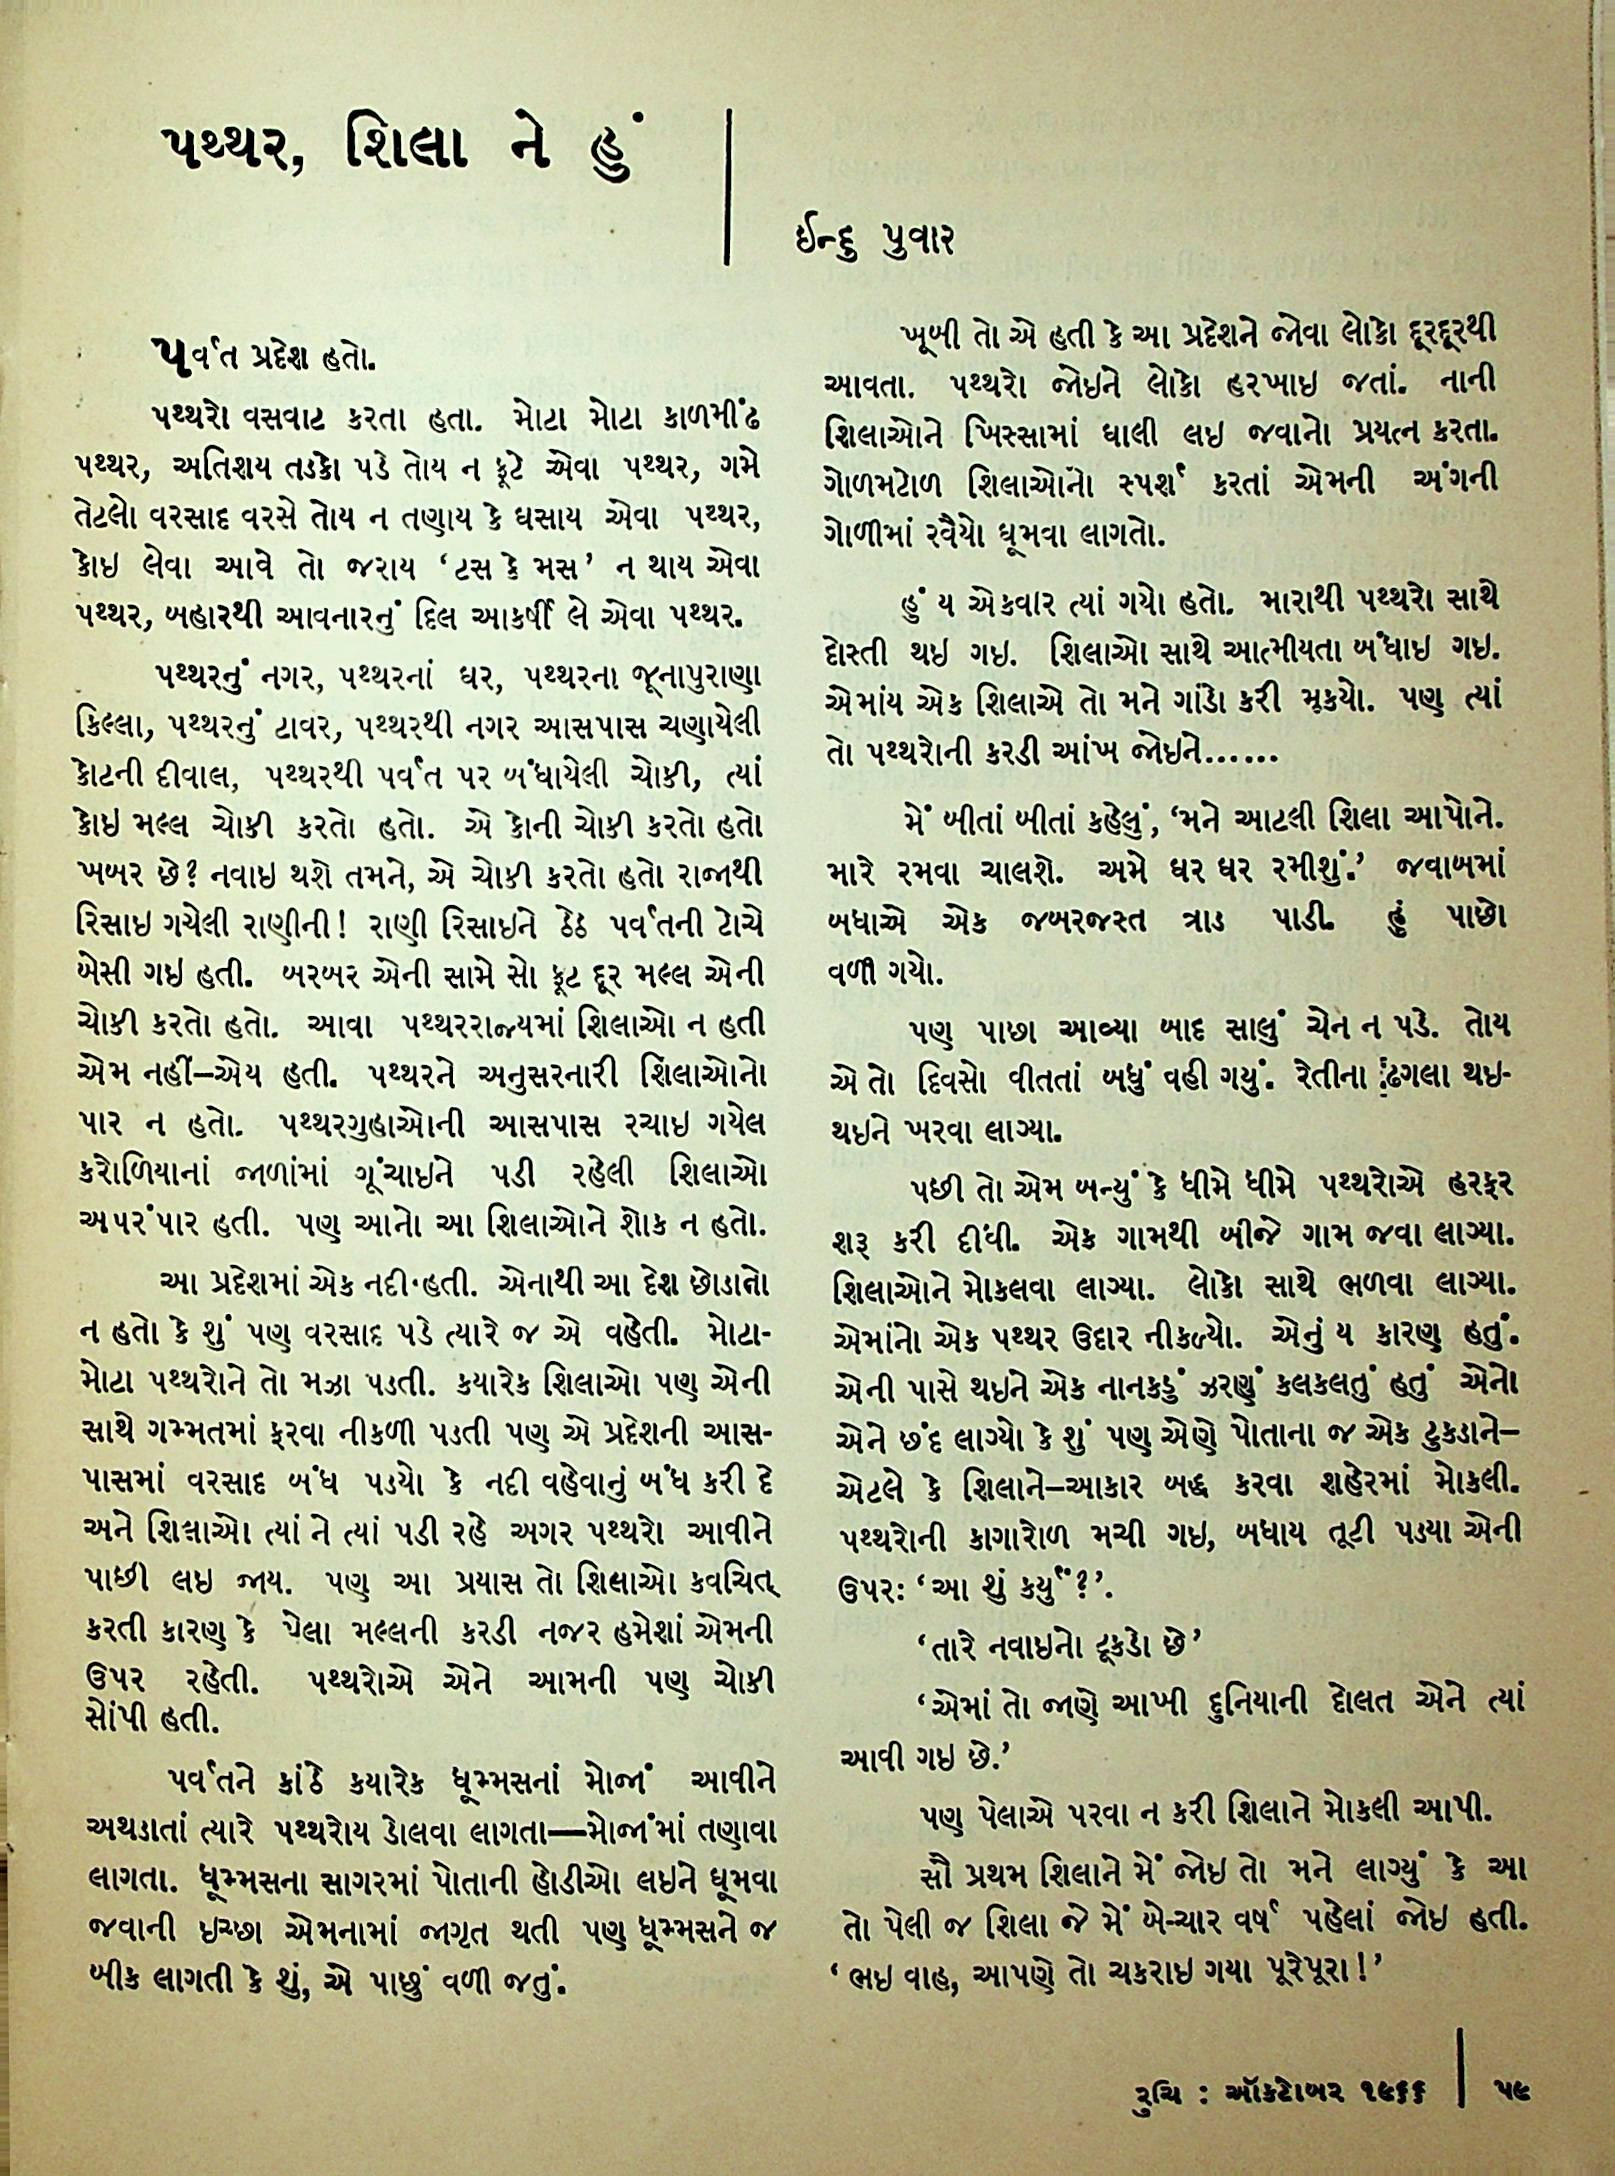 પથ્થર, શિલા ને હું
ઈન્દુ પુવાર
પર્વત પ્રદેશ હતો.
પથ્થરો વસવાટ કરતા હતા. મોટા મોટા કાળમીંઢ
પથ્થર, અતિશય તડકો પડે તોય ન ફૂટે એવા પથ્થર, ગમે
તેટલો વરસાદ વરસે તોય ન તણાય કે ઘસાય એવા પથ્થર,
કોઇ લેવા આવે તો જરાય ‘ટસ કે મસ’ ન થાય એવા
પથ્થર, બહારથી આવનારનું દિલ આકર્ષી લે એવા પથ્થર.
પથ્થરનું નગર, પથ્થરનાં ઘર, પથ્થરના જૂનાપુરાણા
કિલ્લા, પથ્થરનું ટાવર, પથ્થરથી નગર આસપાસ ચણાયેલી
કોટની દીવાલ, પથ્થરથી પર્વત પર બંધાયેલી ચોકી, ત્યાં
કોઇ મલ્લ ચોકી કરતો હતો. એ કોની ચોકી કરતો હતો
ખબર છે? નવાઇ થશે તમને, એ ચોકી કરતો હતો રાજાથી
રિસાઇ ગયેલી રાણીની! રાણી રિસાઇને ઠેઠ પર્વતની ટોચે
બેસી ગઇ હતી. બરબર એની સામે સો ફૂટ દૂર મલ્લ એની
ચોકી કરતો હતો. આવા પથ્થરરાજ્યમાં શિલાઓ ન હતી
એમ નહીં—એય હતી. પથ્થરને અનુસરનારી શિલાઓનો
પાર ન હતો. પથ્થરગુહાઓની આસપાસ રચાઇ ગયેલ
કરોળિયાનાં જાળાંમાં ગૂંચાઇને પડી રહેલી શિલાઓ
અપરંપાર હતી. પણ આનો આ શિલાઓને શોક ન હતો.
આ પ્રદેશમાં એક નદી હતી. એનાથી આ દેશ છોડાતો
ન હતો કે શું પણ વરસાદ પડે ત્યારે જ એ વહેતી. મોટા-
મોટા પથ્થરોને તો મઝા પડતી. કયારેક શિલાઓ પણ એની
સાથે ગમ્મતમાં ફરવા નીકળી પડતી પણ એ પ્રદેશની આસ-
પાસમાં વરસાદ બંધ પડયો કે નદી વહેવાનું બંધ કરી દે
અને શિલાઓ ત્યાં ને ત્યાં પડી રહે અગર પથ્થરો આવીને
પાછી લઇ જાય. પણ આ પ્રયાસ તો શિલાઓ કવચિત્
કરતી કારણ કે પેલા મલ્લની કરડી નજર હમેશાં એમની
ઉપર રહેતી. પથ્થરોએ એને આમની પણ ચોકી
સોંપી હતી.
પર્વતને કાંઠે કયારેક ધૂમ્મસનાં મોજાં આવીને
અથડાતાં ત્યારે પથ્થરોય ડોલવા લાગતા—મોજાંમાં તણાવા
લાગતા. ધૂમ્મસના સાગરમાં પોતાની હોડીઓ લઇને ઘૂમવા
જવાની ઇચ્છા એમનામાં જાગૃત થતી પણ ધૂમ્મસને જ
બીક લાગતી કે શું, એ પાછું વળી જતું.
ખૂબી તો એ હતી કે આ પ્રદેશને જોવા લોકો દૂરદૂરથી
આવતા. પથ્થરો જોઇને લોકો હરખાઇ જતાં. નાની
શિલાઓને ખિસ્સામાં ઘાલી લઇ જવાનો પ્રયત્ન કરતા.
ગોળમટોળ શિલાઓનો સ્પર્શ કરતાં એમની અંગની
ગોળીમાં રવૈયો ઘૂમવા લાગતો.
હું ય એકવાર ત્યાં ગયો હતો. મારાથી પથ્થરો સાથે
દોસ્તી થઇ ગઇ. શિલાઓ સાથે આત્મીયતા બંધાઇ ગઇ.
એમાંય એક શિલાએ તો મને ગાંડો કરી મૂકયો. પણ ત્યાં
તો પથ્થરોની કરડી આંખ જોઇને......
મેં બીતાં બીતાં કહેલું, ‘મને આટલી શિલા આપોને.
મારે રમવા ચાલશે. અમે ઘર ઘર રમીશું.’ જવાબમાં
બધાએ એક જબરજસ્ત ત્રાડ પાડી. હું પાછો
વળી ગયો.
પણ પાછા આવ્યા બાદ સાલું ચેન ન પડે. તોય
એ તો દિવસો વીતતાં બધું વહી ગયું. રેતીના ઢગલા થઇ-
થઇને ખરવા લાગ્યા.
પછી તો એમ બન્યું કે ધીમે ધીમે પથ્થરોએ હરફર
શરૂ કરી દીધી. એક ગામથી બીજે ગામ જવા લાગ્યા.
શિલાઓને મોકલવા લાગ્યા. લોકો સાથે ભળવા લાગ્યા.
એમાંનો એક પથ્થર ઉદાર નીકળ્યો. એનું ય કારણ હતું.
એની પાસે થઇને એક નાનકડું ઝરણું કલકલતું હતું એનો
એને છંદ લાગ્યો કે શું પણ એણે પોતાના જ એક ટુકડાને—
એટલે કે શિલાને—આકાર બદ્ધ કરવા શહેરમાં મોકલી.
પથ્થરોની કાગારોળ મચી ગઇ, બધાય તૂટી પડયા એની
ઉપર: ‘આ શું કર્યું?’.
‘તારે નવાઇનો ટૂકડો છે’
‘એમાં તો જાણે આખી દુનિયાની દોલત એને ત્યાં
આવી ગઇ છે.’
પણ પેલાએ પરવા ન કરી શિલાને મોકલી આપી.
સૌ પ્રથમ શિલાને મેં જોઇ તો મને લાગ્યું કે આ
તો પેલી જ શિલા જે મેં બે-ચાર વર્ષ પહેલાં જોઇ હતી.
‘ભઇ વાહ, આપણે તો ચકરાઇ ગયા પૂરેપૂરા!’
રુચિ : ઑકટોબર ૧૯૬૬ | ૫૯